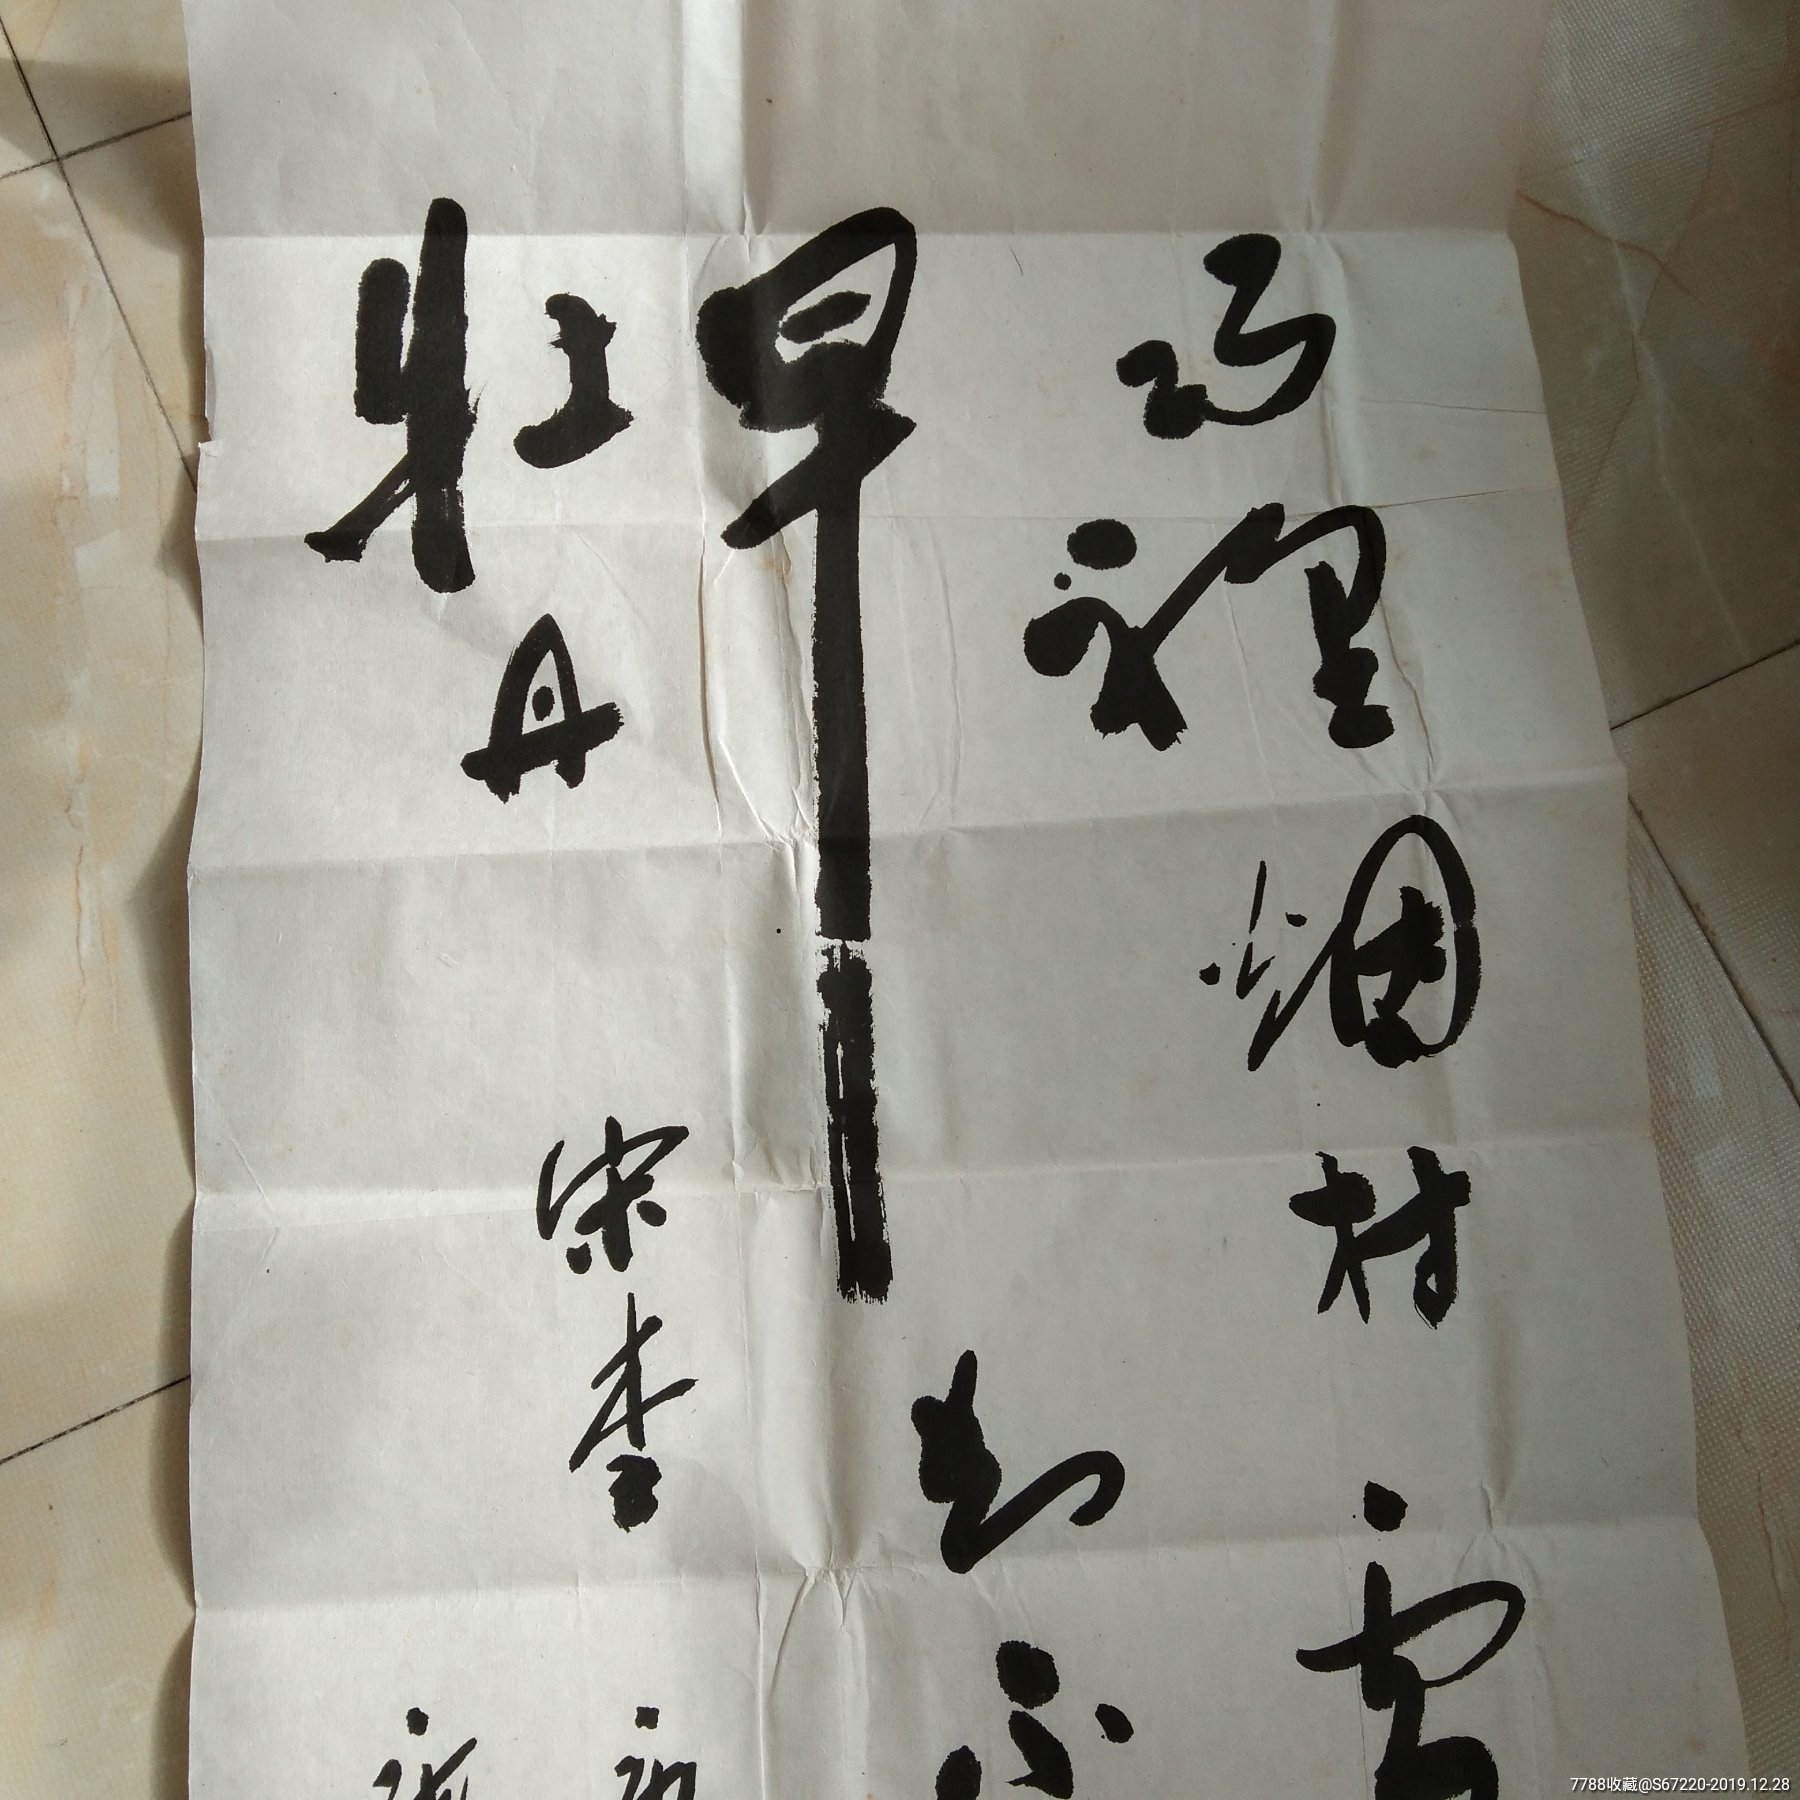 雨裡烟村雪
早知不
牡丹
宋李
7788收藏@S67220-2019.12.28